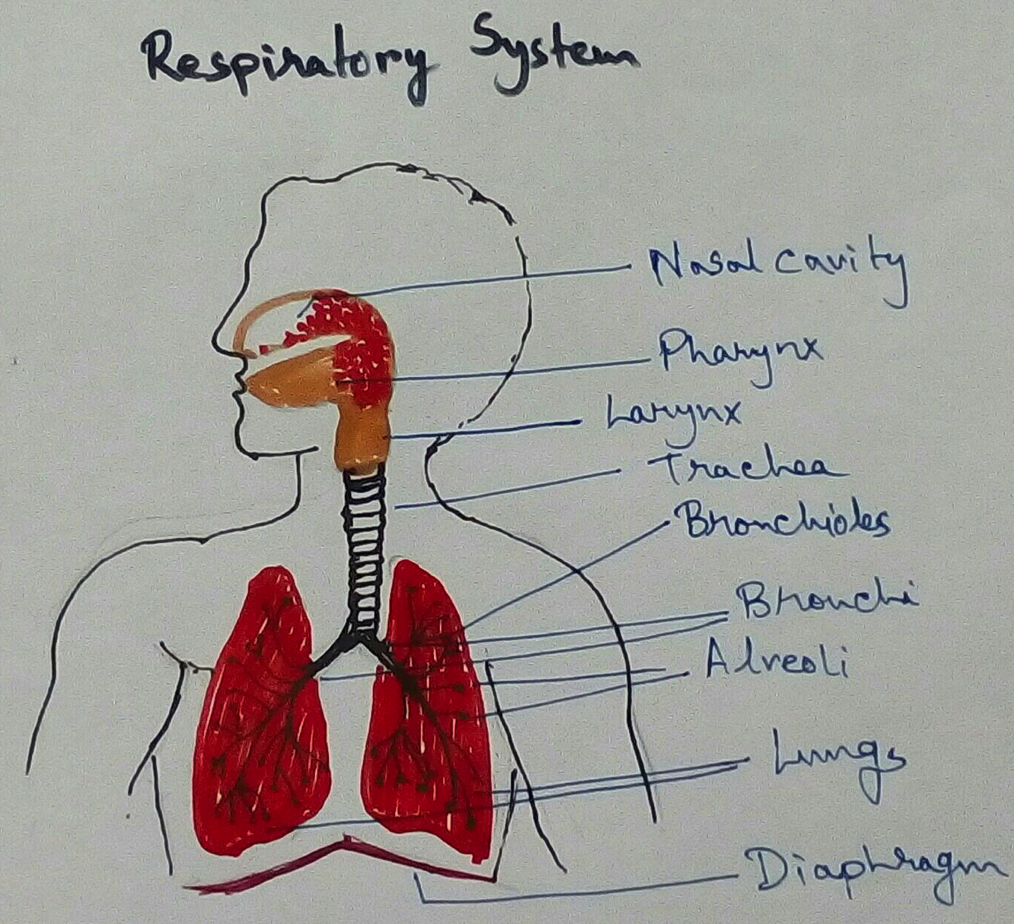 Respiratory System
Nasal cavity
Pharynx
Larynx
Trachea
Bronchioles
Bronchi
Alveoli
Lungs
Diaphragm